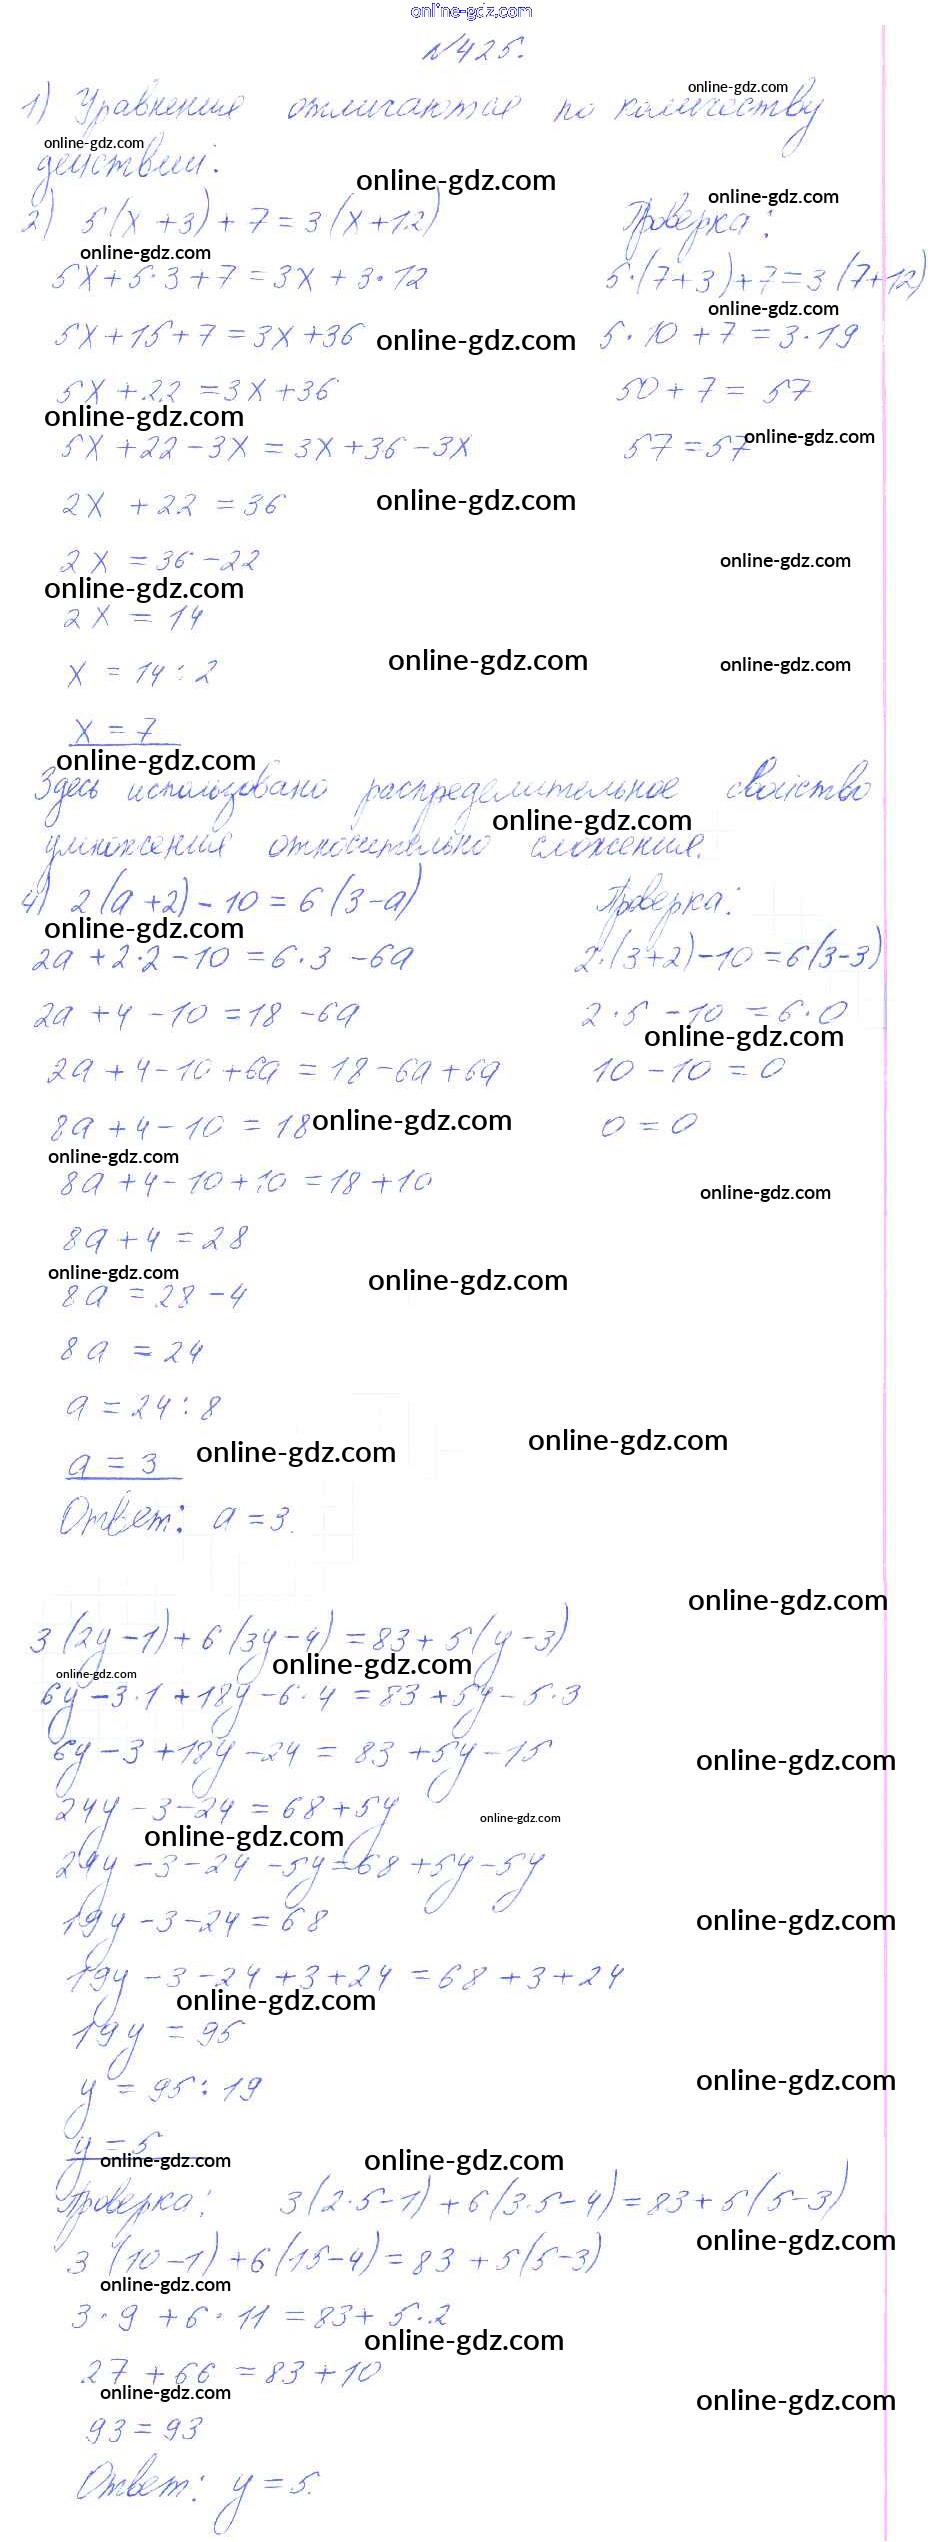 online-gdz.com
№425.
online-gdz.com
1) Уравнения отличаются по количеству
online-gdz.com
действий.
online-gdz.com
online-gdz.com
2) 5(x+3)+7=3(x+12)
Проверка:
online-gdz.com
5x+5·3+7=3x+3·12
5·(7+3)+7=3(7+12)
online-gdz.com
5x+15+7=3x+36
online-gdz.com
5·10+7=3·19
5x+22=3x+36
50+7=57
online-gdz.com
online-gdz.com
5x+22-3x=3x+36-3x
57=57
2x+22=36
online-gdz.com
2x=36-22
online-gdz.com
online-gdz.com
2x=14
x=14:2
online-gdz.com
online-gdz.com
x=7
online-gdz.com
Здесь использовано распределительное свойство
online-gdz.com
умножения относительно сложения.
4) 2(a+2)-10=6(3-a)
Проверка:
online-gdz.com
2a+2·2-10=6·3-6a
2·(3+2)-10=6(3-3)
2a+4-10=18-6a
2·5-10=6·0
online-gdz.com
2a+4-10+6a=18-6a+6a
10-10=0
8a+4-10=18
online-gdz.com
0=0
online-gdz.com
8a+4-10+10=18+10
online-gdz.com
8a+4=28
online-gdz.com
online-gdz.com
8a=28-4
8a=24
a=24:8
online-gdz.com
online-gdz.com
a=3
Ответ: a=3.
online-gdz.com
3(2y-1)+6(3y-4)=83+5(y-3)
online-gdz.com
online-gdz.com
6y-3·1+18y-6·4=83+5y-5·3
6y-3+18y-24=83+5y-15
online-gdz.com
24y-3-24=68+5y
online-gdz.com
online-gdz.com
24y-3-24-5y=68+5y-5y
19y-3-24=68
online-gdz.com
19y-3-24+3+24=68+3+24
online-gdz.com
19y=95
y=95:19
online-gdz.com
y=5
online-gdz.com
online-gdz.com
Проверка: 3(2·5-1)+6(3·5-4)=83+5(5-3)
online-gdz.com
3(10-1)+6(15-4)=83+5(5-3)
online-gdz.com
3·9+6·11=83+5·2
online-gdz.com
27+66=83+10
online-gdz.com
online-gdz.com
93=93
Ответ: y=5.